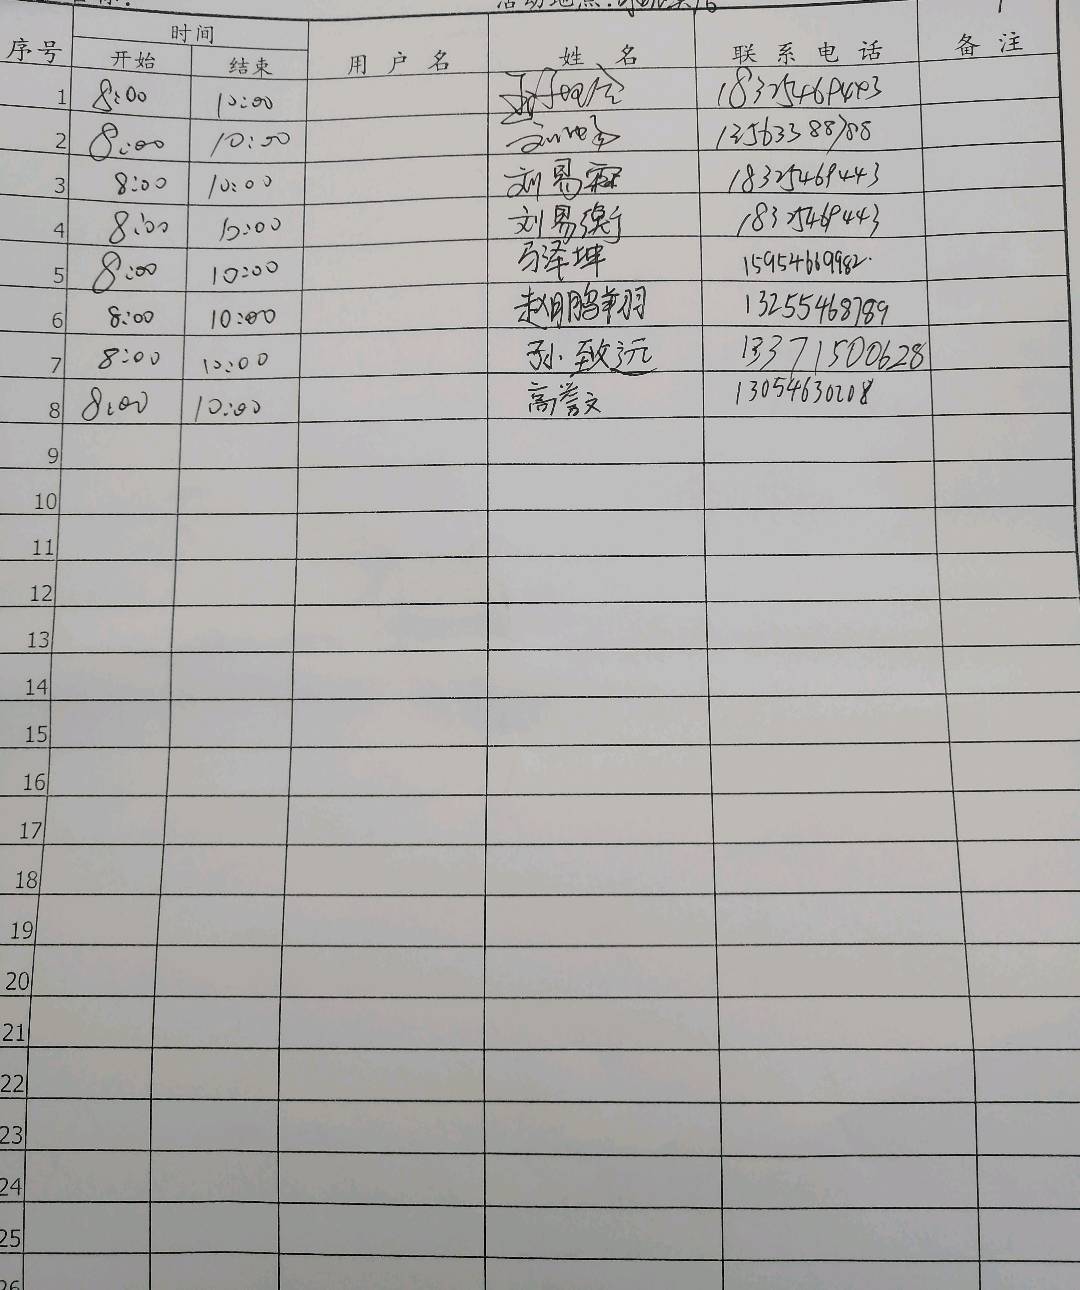 活动地点:
时间
序号 开始 结束 用户名 姓名 联系电话 备注
1 8:00 10:00 18325469443
2 8:00 10:00 13563388788
3 8:00 10:00 刘易霖 18325469443
4 8:00 10:00 刘易衡 18325469443
5 8:00 10:00 马泽坤 15954669982
6 8:00 10:00 赵明鹏翔羽 13255468789
7 8:00 10:00 孙致远 13371500628
8 8:00 10:00 高誉文 13054630208
9
10
11
12
13
14
15
16
17
18
19
20
21
22
23
24
25
26